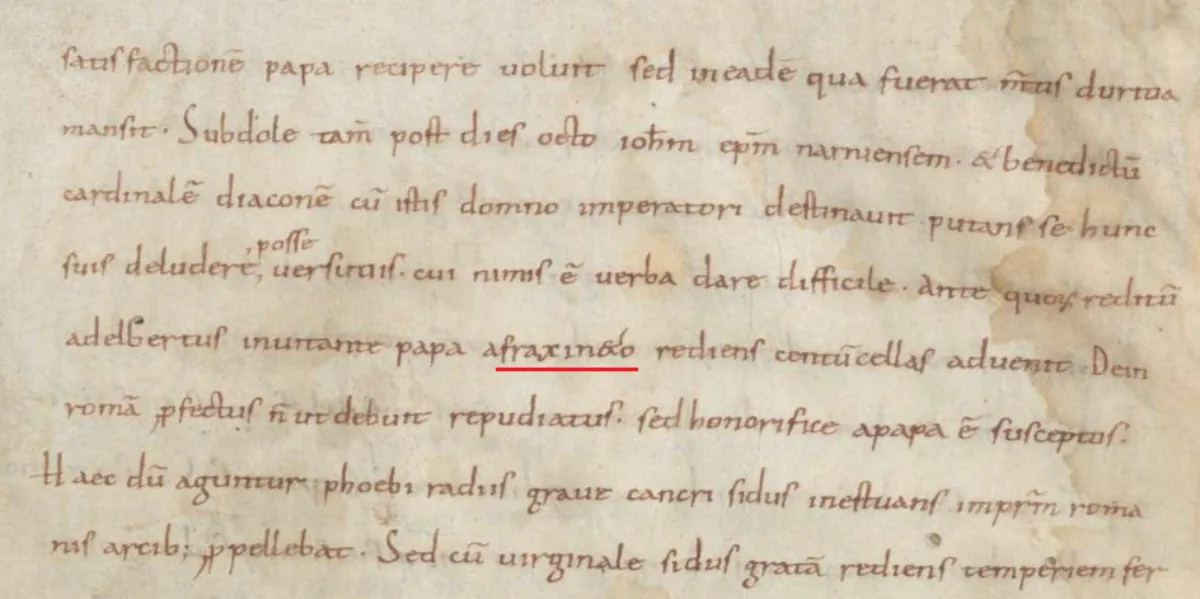 satisfactionē papa recipere voluit sed ineadē qua fuerat m̄tis duritia
mansit · Subdole tam̄ post dies octo ioh̄m ep̄m narniensem · & benedictū
cardinalē diaconē cū istis domno imperatori destinauit putans se hunc
suis deludere, posse uersutiis · cui nimis ē uerba dare difficile · Ante quoꝝ reditū
adelbertus inuitante papa afraxin&o rediens centūcellas aduenit · Dein
romā ꝓfectus n̄ ut debuit repudiatus · sed honorifice apapa ē susceptus ·
Haec dū aguntur phoebi radiis graue cancri sidus inestuans impr̄m roma
nis arcib; ꝓpellebat · Sed cū uirginale sidus gratā rediens temperiem fer